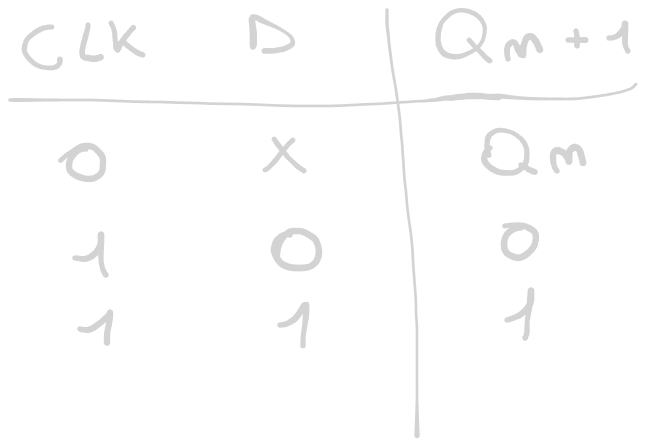 CLK D Qn+1
0 X Qn
1 0 0
1 1 1